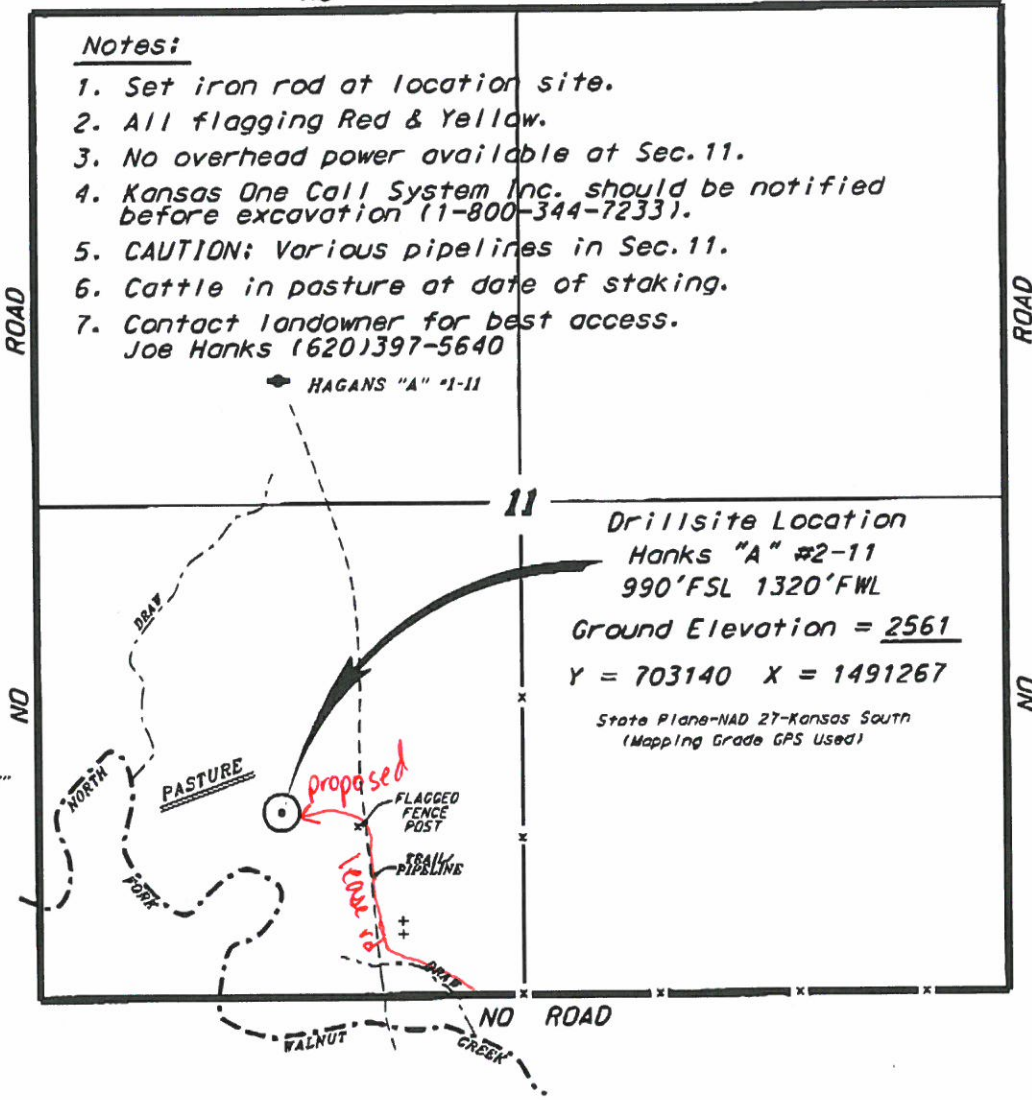 Notes:
1. Set iron rod at location site.
2. All flagging Red & Yellow.
3. No overhead power available at Sec. 11.
4. Kansas One Call System Inc. should be notified
before excavation (1-800-344-7233).
5. CAUTION: Various pipelines in Sec. 11.
6. Cattle in pasture at date of staking.
7. Contact landowner for best access.
Joe Hanks (620)397-5640
ROAD
ROAD
HAGANS "A" #1-11
11
Drillsite Location
Hanks "A" #2-11
990'FSL 1320'FWL
Ground Elevation = 2561
Y = 703140 X = 1491267
State Plane-NAD 27-Kansas South
(Mapping Grade GPS Used)
DRAW
NO
NO
NORTH
PASTURE
proposed
FLAGGED
FENCE
POST
TRAIL
PIPELINE
FORK
lease rd
DRAW
NO ROAD
WALNUT
CREEK